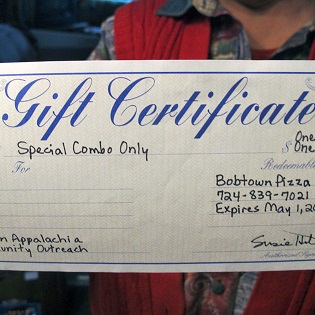 Gift Certificate
Special Combo Only
$ One
One
For
Redeemable
Bobtown Pizza
724-839-7021
Expires May 1, 20
n Appalachia
unity Outreach
Susie
Authorized